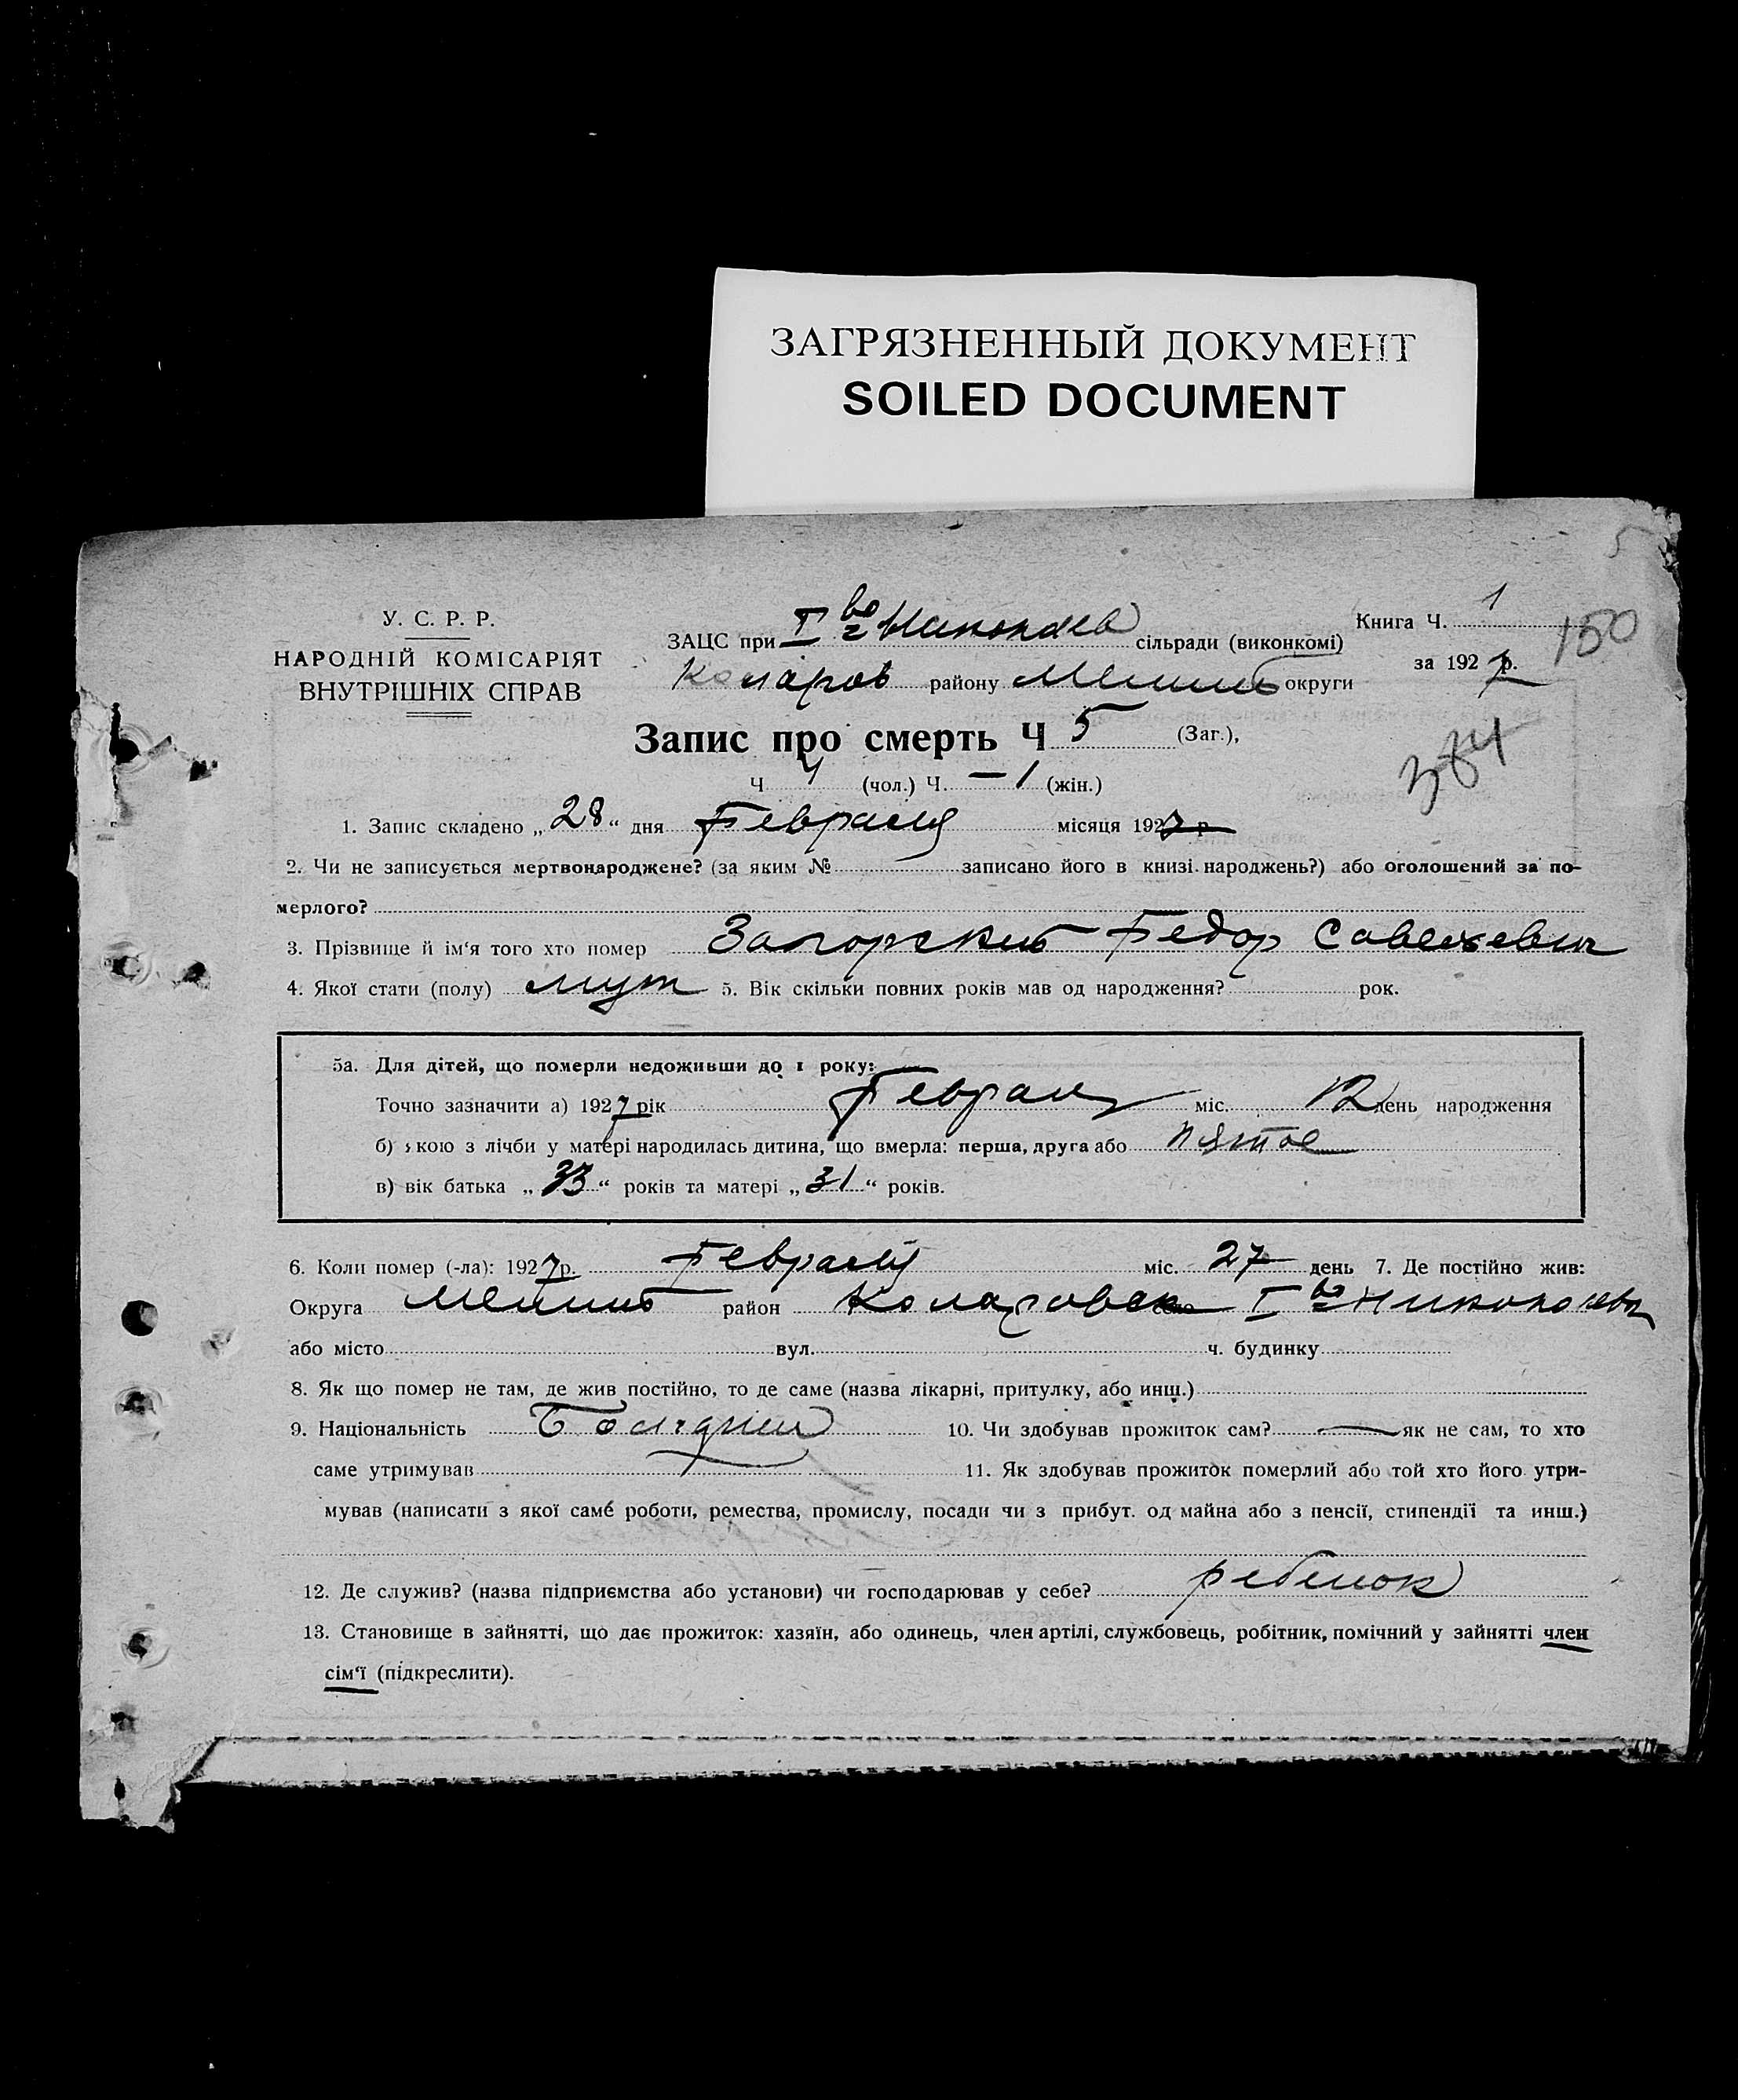 ЗАГРЯЗНЕННЫЙ ДОКУМЕНТ
SOILED DOCUMENT
5
У. С. Р. Р.
НАРОДНІЙ КОМІСАРІЯТ
ВНУТРІШНІХ СПРАВ
ЗАЦС при I во Николаев сільради (виконкомі)
Коларов району Мелит округи
Книга Ч. 1
за 1927 р.
150
384
Запис про смерть Ч 5 (Заг.),
Ч 4 (чол.) Ч. — 1 (жін.)
1. Запис складено „ 28 “ дня Февраля місяця 1927 р
2. Чи не записується мертвонароджене? (за яким № записано його в книзі народжень?) або оголошений за по-
мерлого?
3. Прізвище й ім‘я того хто помер Загорский Федор Савельевич
4. Якої стати (полу) муж 5. Вік скільки повних років мав од народження? рок.
5а. Для дітей, що померли недоживши до 1 року:
Точно зазначити а) 1927 рік Февраля міс. 12 день народження
б) якою з лічби у матері народилась дитина, що вмерла: перша, друга або пятое
в) вік батька „ 33 “ років та матері „ 31 “ років.
6. Коли помер (-ла): 1927 р. Февраля міс. 27 день 7. Де постійно жив:
Округа Мелит район Коларовск село I во Николаевк
або місто вул. ч. будинку
8. Як що помер не там, де жив постійно, то де саме (назва лікарні, притулку, або инш.)
9. Національність 10. Чи здобував прожиток сам? — як не сам, то хто
саме утримував 11. Як здобував прожиток померлий або той хто його утри-
мував (написати з якої саме роботи, ремества, промислу, посади чи з прибут. од майна або з пенсії, стипендії та инш.)
12. Де служив? (назва підприємства або установи) чи господарював у себе? ребенок
13. Становище в зайнятті, що дає прожиток: хазяїн, або одинець, член артілі, службовець, робітник, помічний у зайнятті член
сім‘ї (підкреслити).